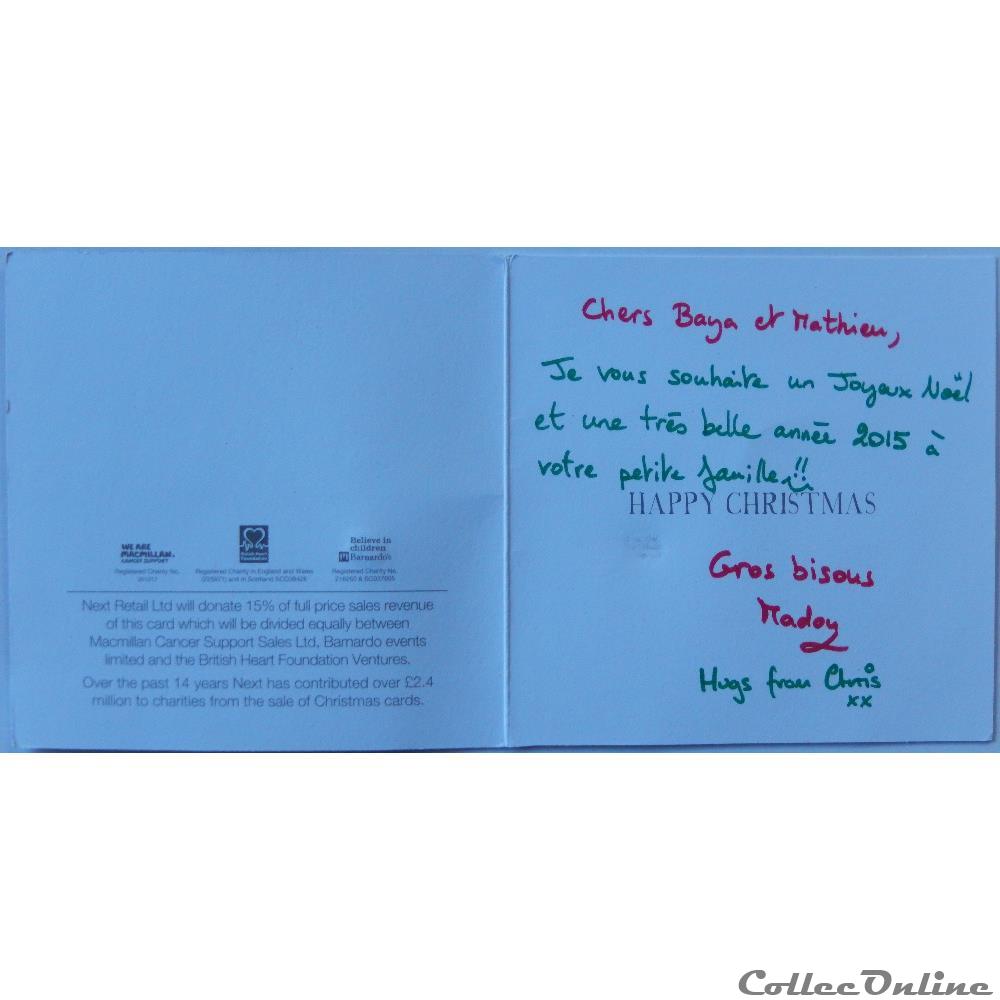 WE ARE
MACMILLAN.
CANCER SUPPORT
Registered Charity No.
British Heart
Foundation
Registered Charity in England and Wales
(225971) and in Scotland SC039426
Believe in
children
Barnardo's
Registered Charity No.
216250 & SC037605
Next Retail Ltd will donate 15% of full price sales revenue
of this card which will be divided equally between
Macmillan Cancer Support Sales Ltd, Barnardo events
limited and the British Heart Foundation Ventures.
Over the past 14 years Next has contributed over £2.4
million to charities from the sale of Christmas cards.
Chers Baya et Mathieu,
Je vous souhaite un Joyeux Noël
et une très belle année 2015 à
votre petite famille!!
HAPPY CHRISTMAS
Gros bisous
Madoy
Hugs from Chris
xx
CollecOnline